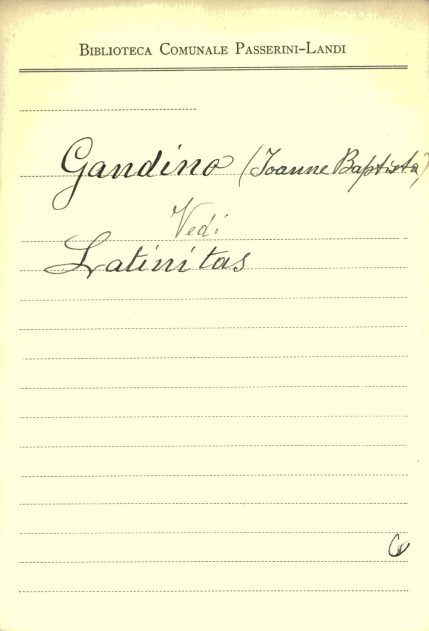 BIBLIOTECA COMUNALE PASSERINI-LANDI
Gandino (Joanne Baptista)
Vedi
Latinitas